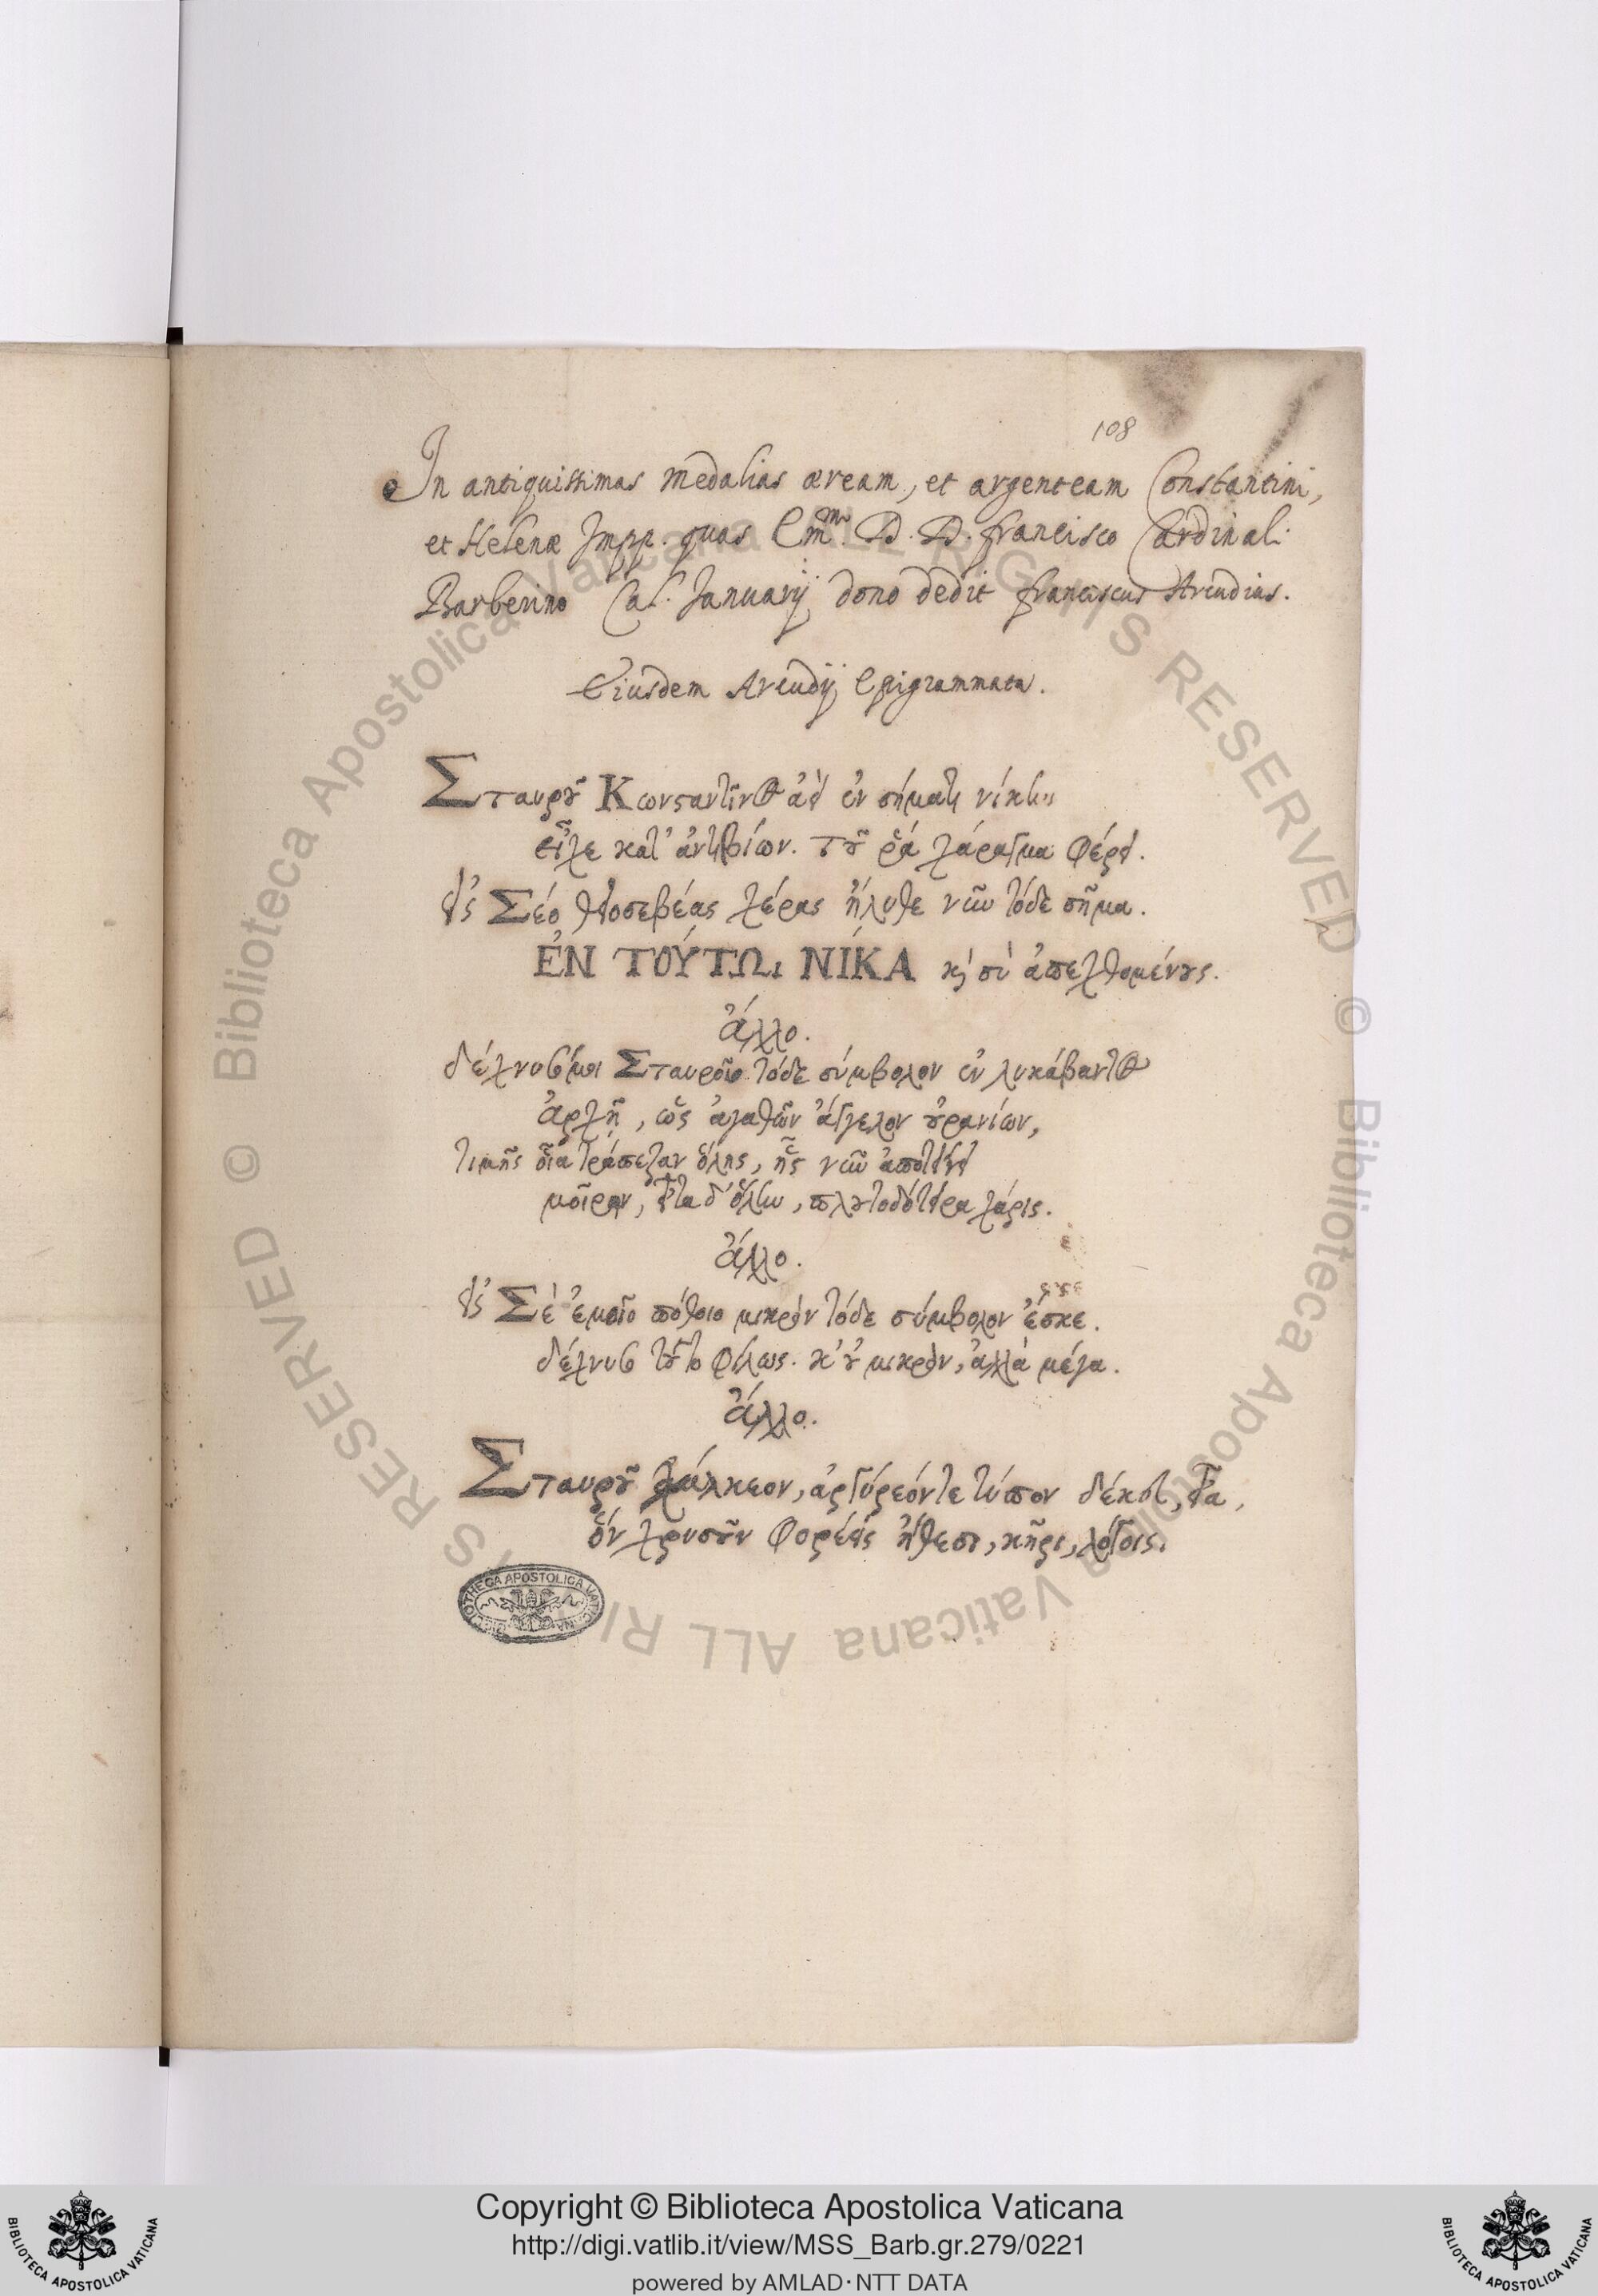 108
In antiquissimas medalias æream, et argenteam Constantini,
et Helenæ Impp. quas Emmo. D. D. francisco Cardinali
Barberino Cal. Januarij dono dedit franciscus Arcudius.
Eiusdem Arcudij Epigrammata.
Σταυροῦ Κωνσταντῖνος ἀεὶ ἐν σήματι νίκην
εἷχε κατ' ἀντιβίων. τοῦ ῥά χάραγμα φέρει.
εἰς Σέο θεοσεβέας χέρας ἤλυθε νῦν τόδε σῆμα.
ἘΝ ΤΟΎΤΩι ΝΊΚΑ καὶ σὺ ἀπεχθομένους.
ἄλλο.
Σταυροῖο τόδε σύμβολον ἐν λυκάβαντος
ἀρχῇ, ὡς ἀγαθῶν ἄγγελον οὐρανίων,
τιμῆς ὅλης, ἧς νῦν
μοῖραν, εἶτα δ' ὅλην, πλουτοδότειρα χάρις.
ἄλλο.
εἰς Σὲ ἐμοῖο πόθοιο μικρὸν τόδε σύμβολον ἔσκε.
τοῦτο φίλως. κ' οὐ μικρὸν, ἀλλὰ μέγα.
ἄλλο.
Σταυροῦ χάλκεον, ἀργύρεόντε τύπον δέκευ, εἶα,
ὅν χρυσοῦν φορέεις ἤθεσι, κῆρι, λόγοις.
BIBLIOTHECA APOSTOLICA VATICANA
© Biblioteca Apostolica Vaticana ALL RIGHTS RESERVED © Biblioteca Apostolica Vaticana ALL RIGHTS RESERVED
Copyright © Biblioteca Apostolica Vaticana
http://digi.vatlib.it/view/MSS_Barb.gr.279/0221
powered by AMLAD·NTT DATA
BIBLIOTECA APOSTOLICA VATICANA
BIBLIOTECA APOSTOLICA VATICANA